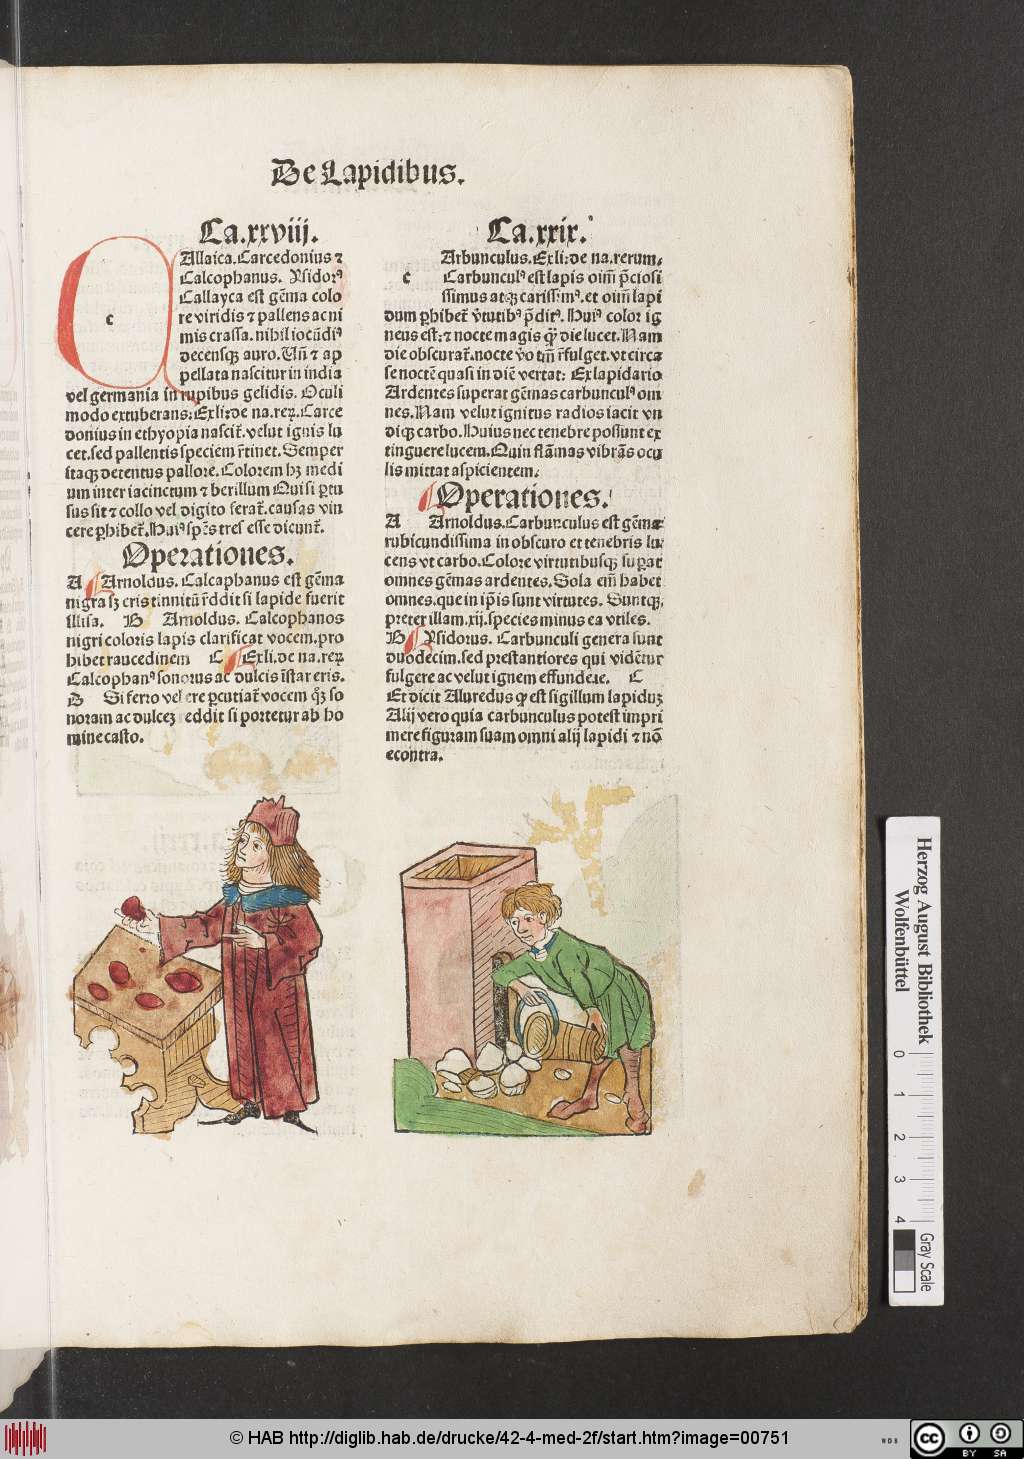 De Lapidibus.
Ca.xxviij.
c
Allaica. Carcedonius ⁊
Calcophanus. Ysidorꝰ
Callayca est gēma colo
re viridis ⁊ pallens ac ni
mis crassa. nihil iocūdiꝰ
decensqꝫ auro. Uñ ⁊ ap
pellata nascitur in india
vel germania in rupibus gelidis. Oculi
modo extuberans: Ex li: de na. reꝝ. Carce
donius in ethyopia nascit̄. velut ignis lu
cet. sed pallentis speciem r̄tinet. Semper
itaqꝫ detentus pallore. Colorem hꝫ medi
um inter iacinctum ⁊ berillum Qui si ꝑtu
sus sit ⁊ collo vel digito ferat̄. causas vin
cere ꝑhibet̄. Huiꝰ spēs tres esse dicunt̄.
Operationes.
A Arnoldus. Calcaphanus est gēma
nigra sꝫ cris tinnitū r̄ddit si lapide fuerit
illisa. B Arnoldus. Calcophanos
nigri coloris lapis clarificat vocem. pro
hibet raucedinem C Ex li. de na. reꝝ
Calcophanꝰ sonorus ac dulcis īstar eris.
D Si ferro vel ere ꝑcutiat̄ vocem qͣꝫ so
noram ac dulceꝫ eddit si portetur ab ho
mine casto.
Ca.xxix.
c
Arbunculus. Ex li: de na. rerum.
Carbunculꝰ est lapis oīm p̄ciosi
ssimus atqꝫ carissimꝰ. et oīm lapi
dum ꝑhibet̄ v̄tutibꝰ p̄ditꝰ. Huiꝰ color ig
neus est: ⁊ nocte magis qͣꝫ die lucet. Nam
die obscurat̄. nocte v̄o tm̄ r̄fulget. vt circa
se noctē quasi in diē vertat: Ex lapidario
Ardentes superat gēmas carbunculꝰ om
nes. Nam velut ignitus radios iacit vn
diqꝫ carbo. Huius nec tenebre possunt ex
tinguere lucem. Quin flāmas vibrās ocu
lis mittat aspicientem.
Operationes.
A Arnoldus. Carbunculus est gēma
rubicundissima in obscuro et tenebris lu
cens vt carbo. Colore virtutibusqꝫ suꝑat
omnes gēmas ardentes. Sola em̄ habet
omnes. que in ip̄is sunt virtutes. Suntqꝫ
preter illam. xij. species minus ea vtiles.
B Ysidorus. Carbunculi genera sunt
duodecim. sed prestantiores qui vidēntur
fulgere ac velut ignem effundere. C
Et dicit Aluredus ꝙ est sigillum lapiduꝫ
Alij vero quia carbunculus potest impri
mere figuram suam omni alij lapidi ⁊ nō
econtra.
Herzog August Bibliothek
Wolfenbüttel
0
1
2
3
4
Gray Scale
© HAB http://diglib.hab.de/drucke/42-4-med-2f/start.htm?image=00751
WDB
cc
BY SA